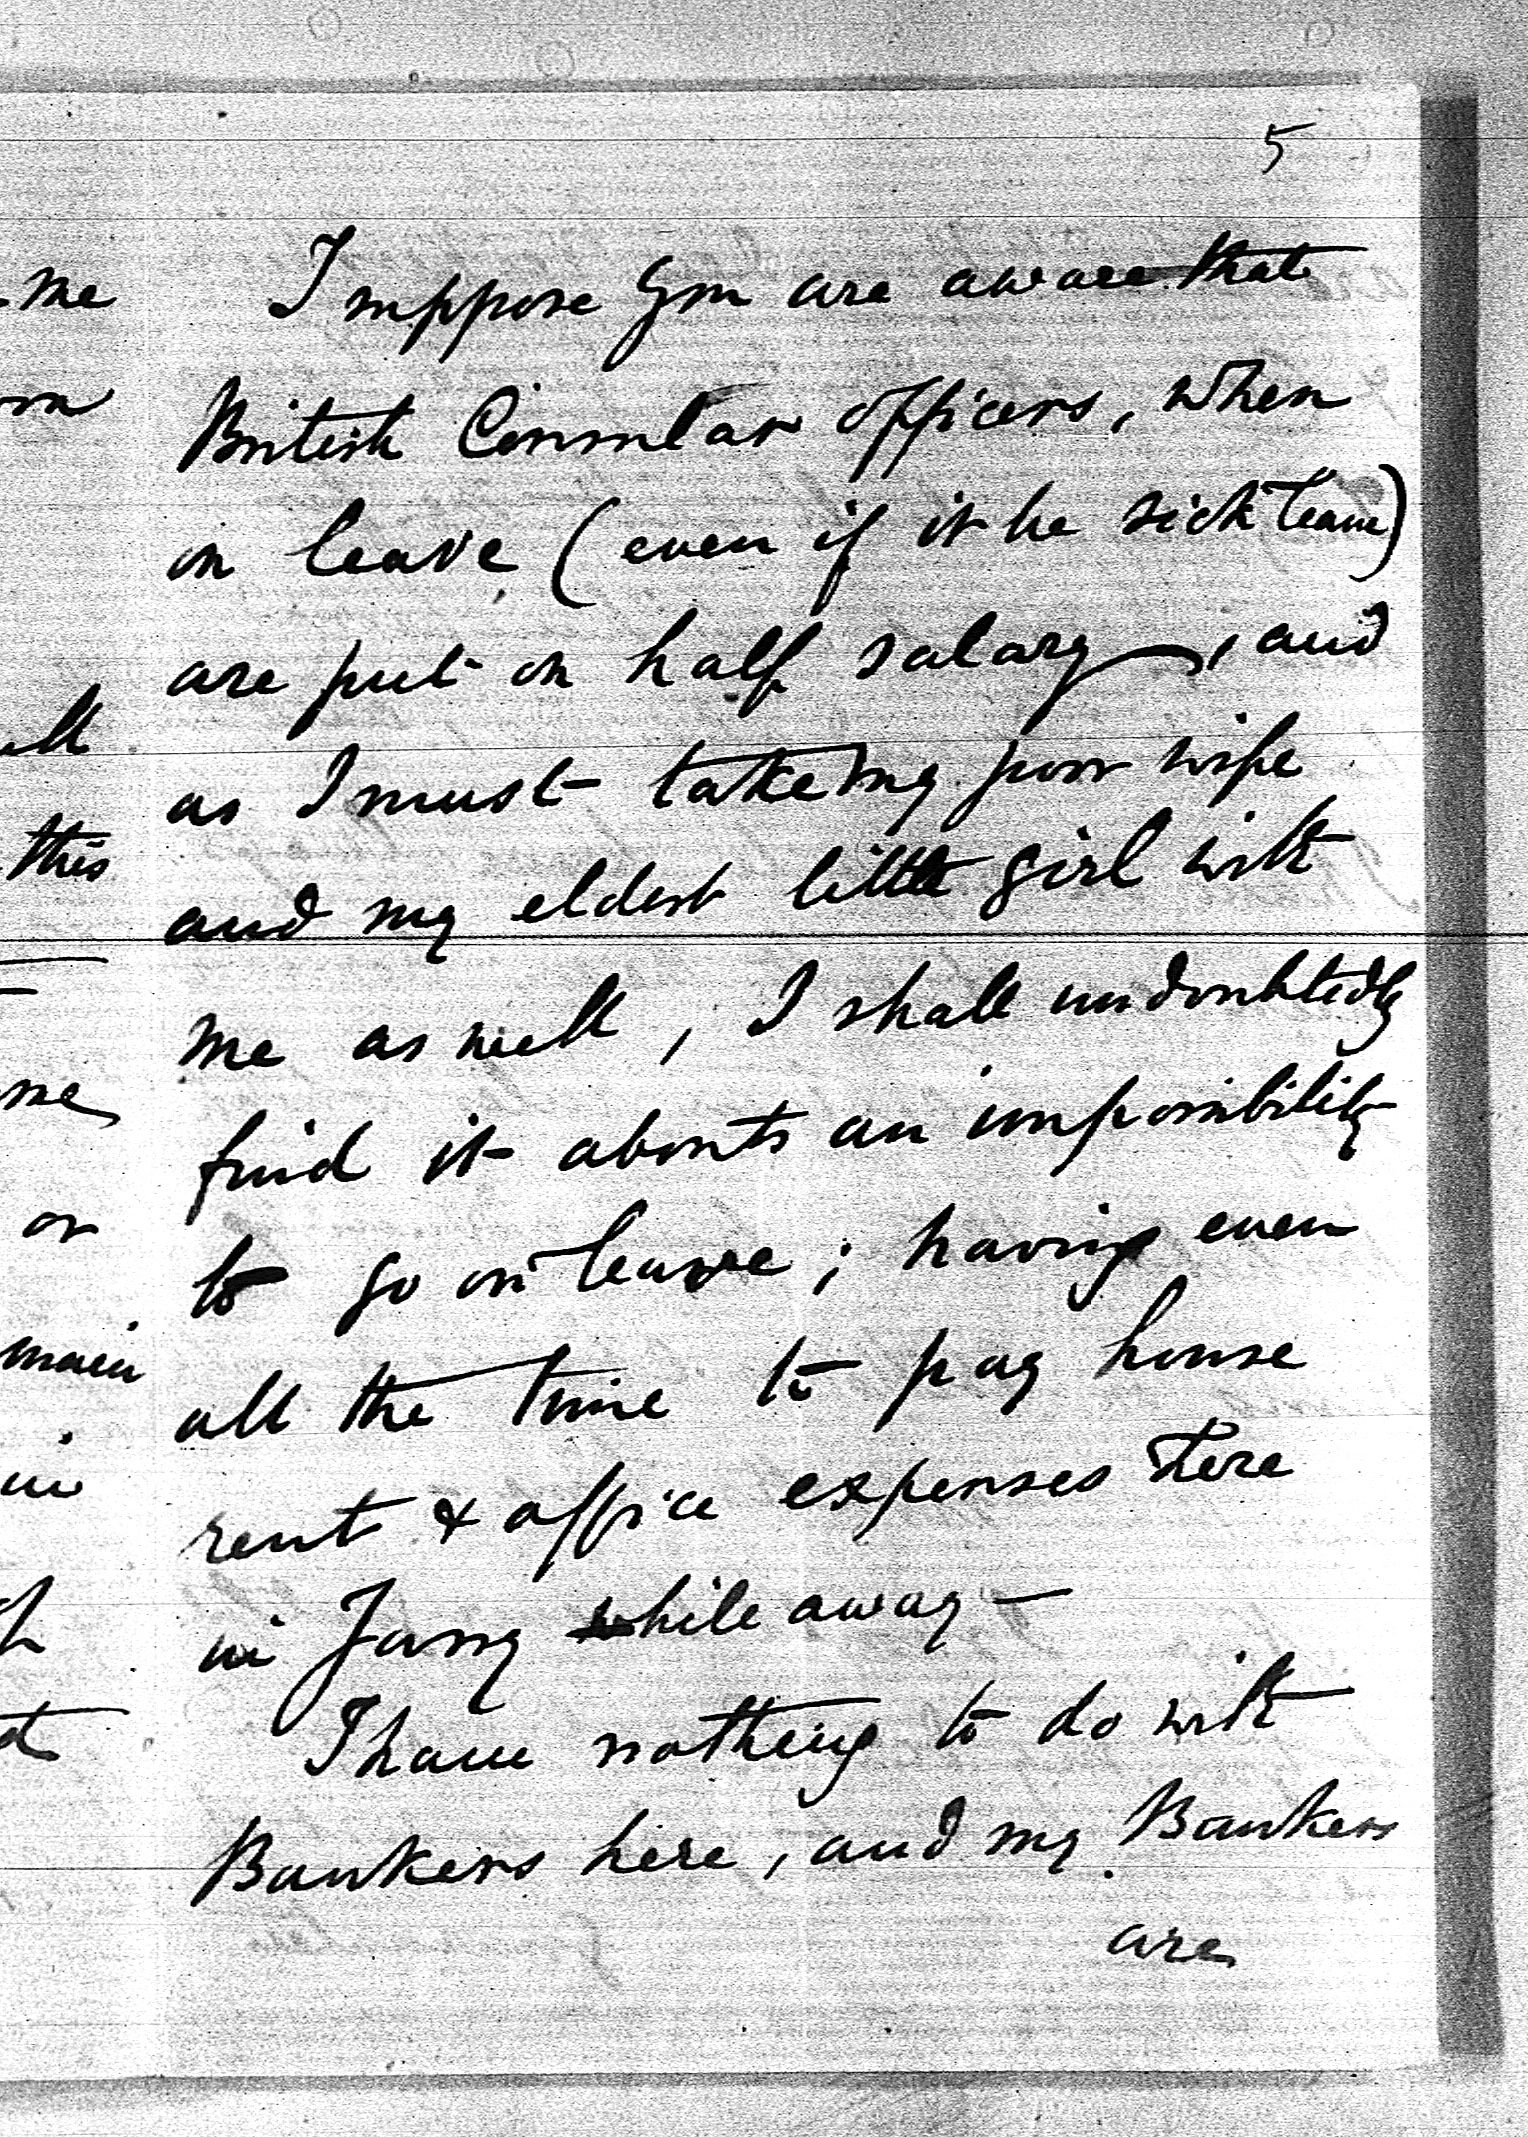 5
I suppose you are aware that
British Consular officers, when
on leave (even if it be sick leave)
are put on half salary, and
as I must take my poor wife
and my eldest little girl with
me as well, I shall undoubtedly
find it about an impossibility
to go on leave; having even
all the time to pay house
rent & office expenses here
in while away —
I have nothing to do with
Bankers here, and my Bankers
are
me
this
me
or